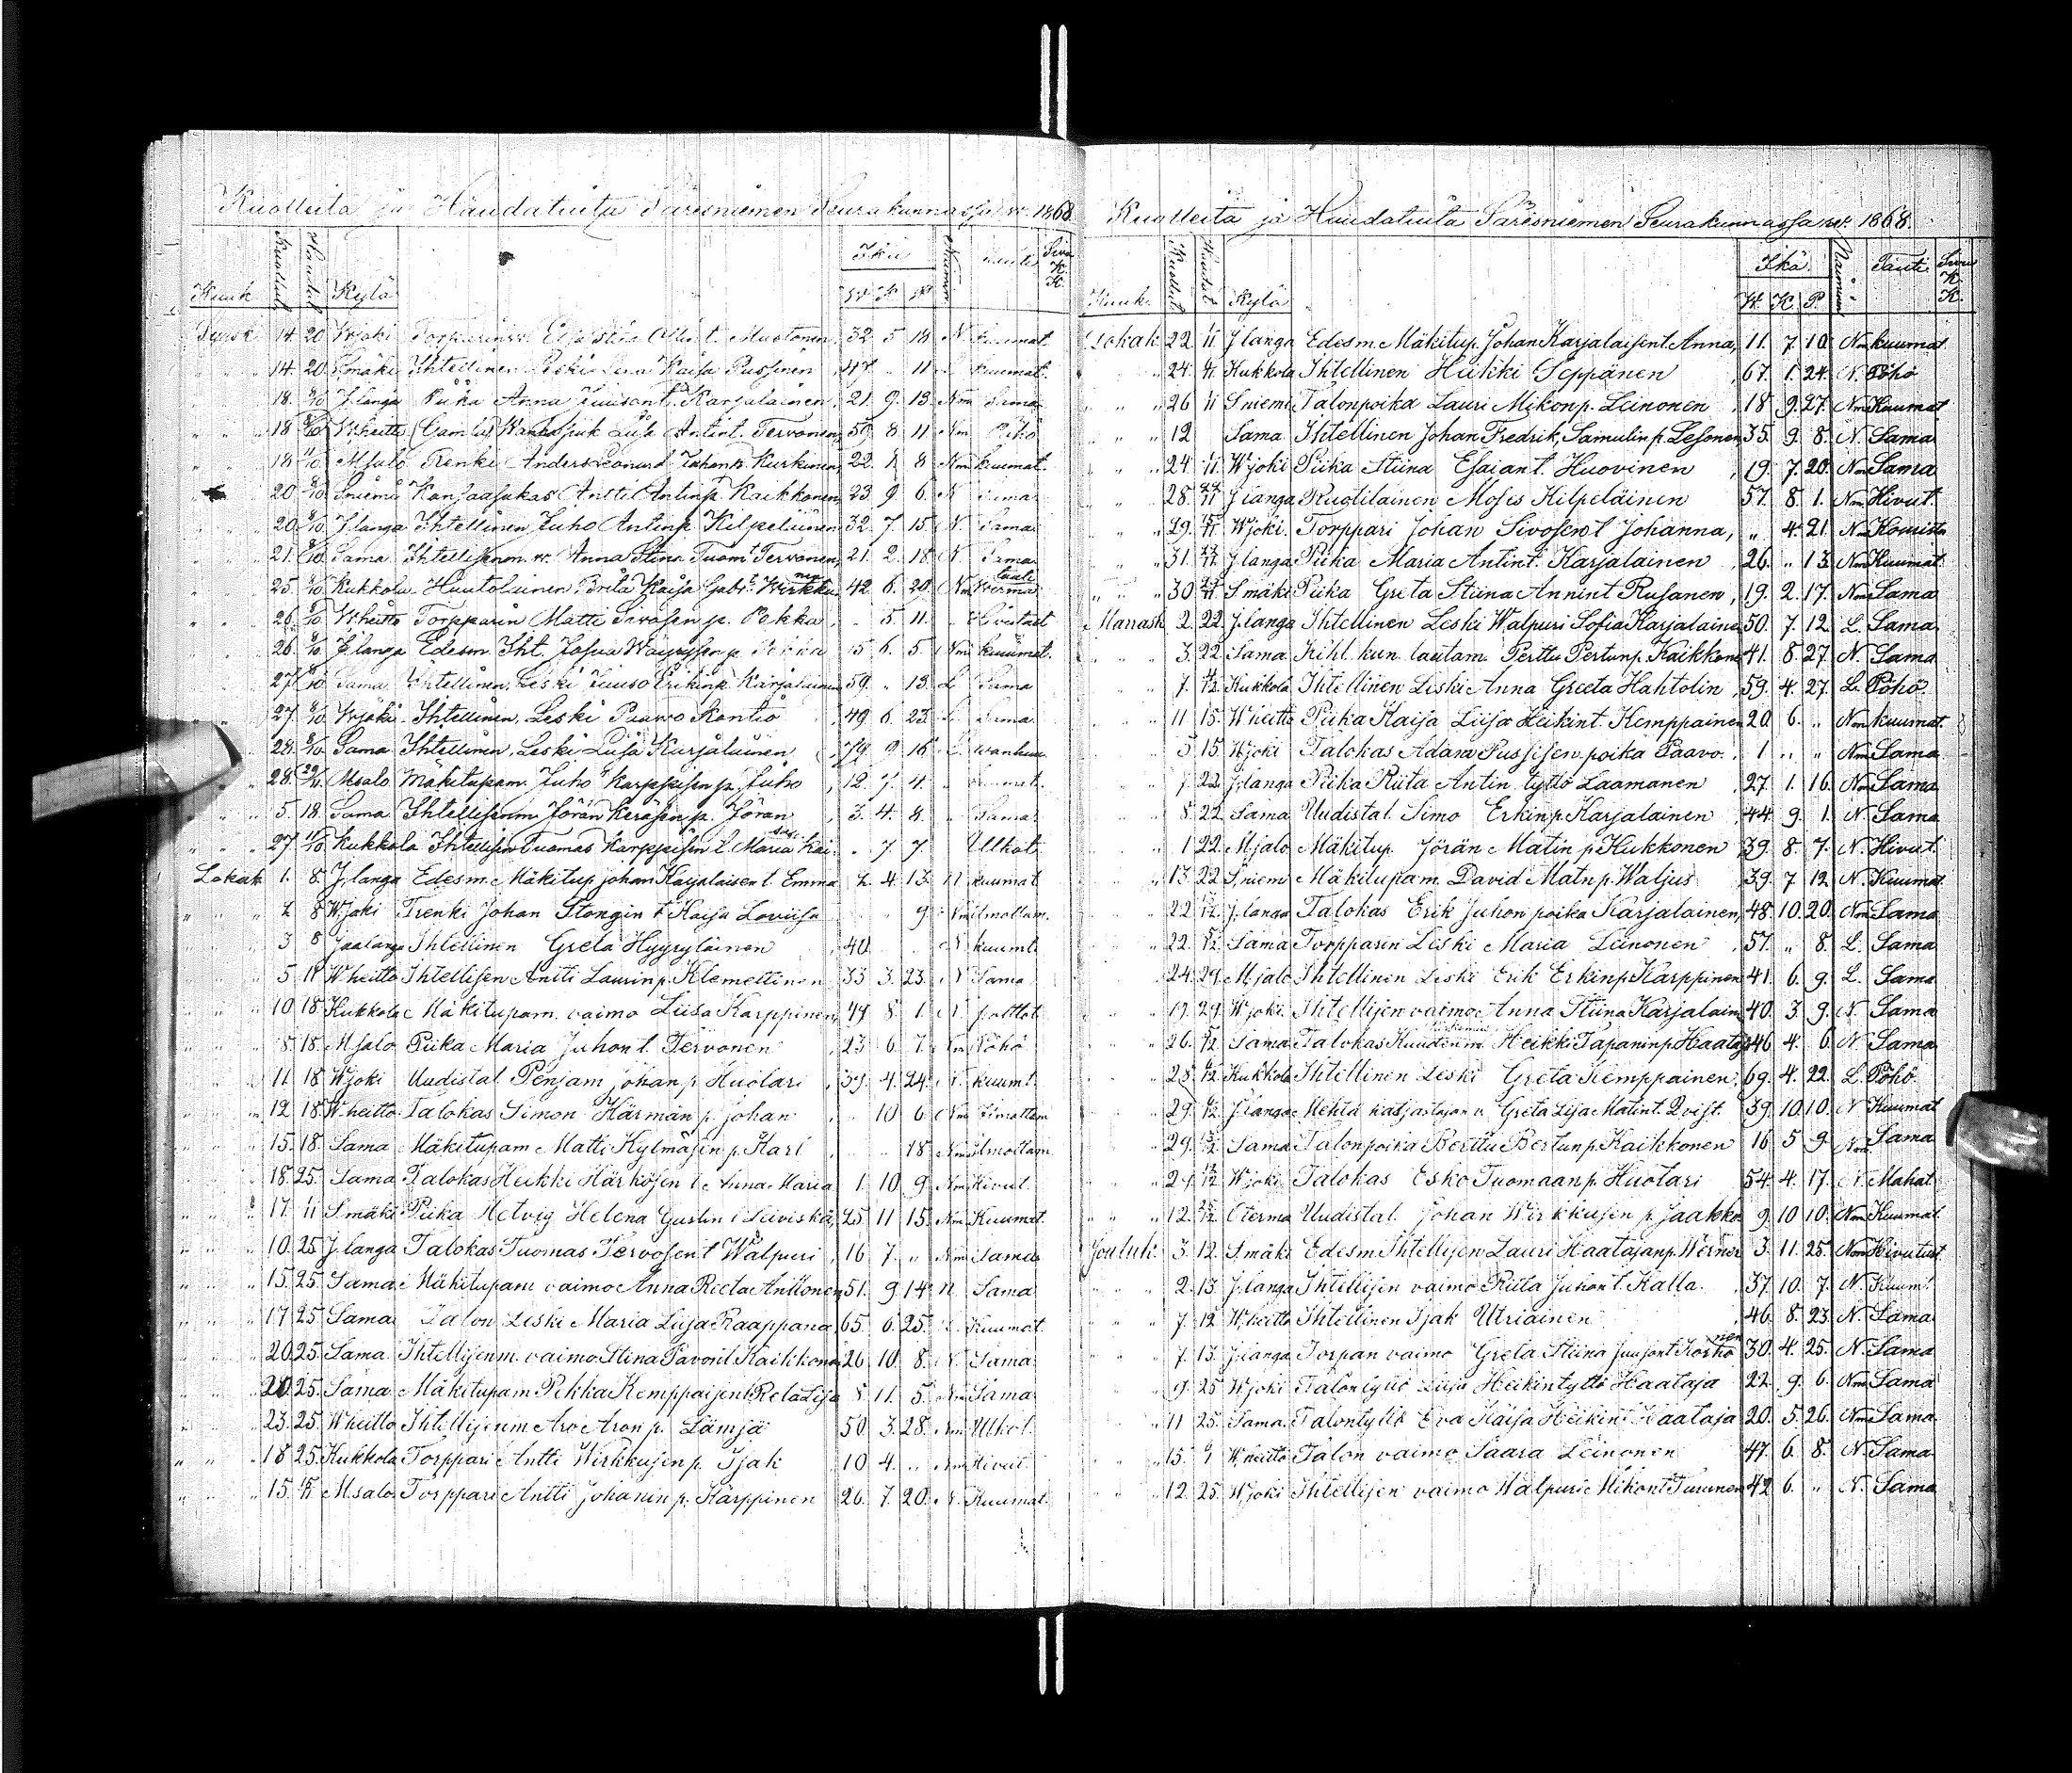 Kuolleita ja Haudatuita Säresniemen Seurakunnassa w. 1868
Kuuk Kuollut Haudat Kylä Ikä W K P Naiminen Tauti Sivu K. K.
Syysk 14. 20 Wjoki Torpparin w. Stina Mustonen 32 5 18 N Kuumat
" " " 14. 20 Smäki Ihtellinen Leski Kaisa Pussinen 47 " 11 Kuumat.
" " " 18. Jlanga Piika Anna Juusont. Karjalainen, 21. 9. 13. Nm Sama
" " " 18 Wheitto Liisa Antint. Tervonen, 8 11 Nm Pöhö
" " " 18 Msalo Renki Anders Leonard Juhanp. Kurkinen, 22. 1 8 Nm kuumat.
20 Sniemi Kansasukas Antti Antinp. Kaikkonen, 23 9 6. N Sama
20. Jlanga Ihtellinen Juho Antinp. Kilpeläinen 32. 7. 15. N. Sama
21. Sama Ihtellisenm. w. Anna Stina Tuomt Tervonen, 21. 2. 18. N. Sama
25. Kukkola Huutolainen Brita Kaisa Gabrt Wirkkunen 42 6. 29. Nm tauti
26. Wheitto Torpparin Matti Sivosen p. Pekka " 5. 11. " Hivutaut
26. Jlanga Edesm. Iht. Josua Wäyrysen p. Pekka 15 6. 5. Nm kuumat.
27. Sama Ihtellinen, Leski Juuso Erikinp. Karjalainen 59. " 13. L Sama
27. Wjoki Ihtellinen, Leski Paavo Kontio 49 6. 23. L Sama
Sama Ihtellinen, Leski Liisa Karjalainen 79 9 16 L wanhuu
28. Msalo Mäkitupam. Juho Karppisen p. Juho 12. 7. 4. " Kuumat.
5. 18. Sama Ihtellisenm Jöran Keräsen p. Jöran 3. 4. 8. " Sama
27 Kukkola Ihtellisen Tuomas Karppisen t. Maria Kai- " 7. 7. Ulkot.
Lokak 1. 8. Jlanga Edesm. Mäkitup. Johan Karjalaisen t. Emma 2. 4. 13. N kuumat
" " " 2 8 Wjoki Trenki Johan Stongin t Kaisa Loviisa " " 9 Nm ilmottam.
3 8 Jaalanga Ihtellinen Greta Hyyryläinen 40 N kuumt.
5 18 Wheitto Ihtellisen Antti Laurin p. Klemettinen 33 3. 23. N Sama
10. 18. Kukkola Mäkitupam. vaimo Liisa Karppinen, 49 8. 1. N. polttot.
8. 18. Msalo Piika Maria Juhon t. Tervonen 23 6 7. Nm Pöhö
11 18 Wjoki Uudistal. Penjam Johan p. Huotari 39. 4. 24. N. kuumt.
12 18 Wheitto Talokas Simon Härmän p. Johan " 10 6 Nm Ilmottam
15. 18. Sama Mäkitupam Matti Kylmäsen p. Karl " " 18 Nm ilmottam
18. 25. Sama Talokas Heikki Härkösen t. Anna Maria 1. 10 9. Nm Hivut.
17 Smäki Piika Hetvig Helena Gustin t. Leiviskä, 25 11 15. Nm Kuumat.
10. 25 Jlanga Talokas Tuomas Tervosen t Walpuri 16 7. " Nm Sama
15. 25. Sama Mäkitupam vaimo Anna Reeta Anttonen 51. 9 14 N Sama
17 25 Sama Talon Leski Maria Liisa Raappana 65. 6. 25. L. Kuumat.
20 25. Sama Ihtellisenm. vaimo Stina Pavont. Kaikkonen 26 10. 8. N. Sama
20 25. Sama Mäkitupam Pekka Kemppaisen t. Reta Lisa 8 11. 5. Nm Sama
23. 25. Wheitto Ihtellisenm Aro Aron p. Lämsä 50. 3. 28. Nm Ulkot.
18 25. Kukkola Torppari Antti Wirkkusen p. Isak 10 4. " Nm Hivut
15. Msalo Torppari Antti Johanin p. Karppinen 26. 7. 20. N. Kuumat.
Kuolleita ja Haudatuita Säresniemen Seurakunnassa w. 1868.
Kuuk. Kuollut Haudat Kylä Ikä W. K. P. Naiminen Tauti Sivu K. K.
Lokak 22. Jlanga Edesm. Mäkitup. Johan Karjalaisent. Anna, 11. 7. 10. Nm kuumat
" 24. Kukkola Ihtellinen Heikki Seppänen 67. 1. 24. N. Pöhö
" " " 26 Sniemi Talonpoika Lauri Mikonp. Leinonen 18 9. 27. Nm Kuumat
" " " 12 Sama Ihtellinen Johan Fredrik, Samulin p. Lesonen, 35. 9. 8. N. Sama
" " " 24. Wjoki Piika Stiina Esaian t. Huovinen 19. 7. 20. Nm Sama
" 28. Jlanga Ruotilainen Moses Kilpeläinen 57. 8. 1. Nm Hivut.
29. Wjoki. Torppari Johan Sivosen t Johanna, " 4. 21. Nm Kouristu
31. Jlanga Piika Maria Antint. Karjalainen 26. " 13 Nm Kuumat.
" " " 30 Smäki Piika Greta Stiina Annint Rusanen, 19. 2. 17. Nm Sama
Marrask 2. 22. Jlanga Ihtellinen Leski Walpuri Sofia Karjalaine 50. 7. 12. L. Sama
3. 22 Sama Kihl. kun. lautam. Perttu Pertunp. Kaikkone 41. 8. 27. N. Sama
7. Kukkola Ihtellinen Leski Anna Greeta Hahtolin 59. 4. 27. L. Pöhö
11 15. Wheitto Piika Kaisa Liisa Heikint. Kemppainen 20 6. " Nm kuumat.
5 15 Wjoki Talokas Adam Pussisen poika Paavo. 1 " " Nm Sama
7. 22 Jlanga Piika Riita Antin tyttö Laamanen 27. 1. 16. Nm Sama
8. 22 Sama Uudistal. Simo Erkin p. Karjalainen 44. 9. 1. N. Sama
1 22. Msalo Mäkitup. Jörän Matin p. Kukkonen 39. 8. 7. N. Hivut.
13. 22 Sniem Mäkitupam. David Matn p. Waljus 39. 7 12 N. Kuumat.
22. Jlanga Talokas Erik Juhon poika Karjalainen, 48. 10. 20. Nm Sama
22. Sama Torpparin Leski Maria Leinonen 57. " 8. L. Sama
24. 29. Msalo Ihtellinen Leski Erik Erkin p. Karppinen 41. 6. 9. L. Sama
19. 29 Wjoki Ihtellisen vaimo Anna Stiina Karjalain 40. 3. 9. N. Sama
26. Sama Talokas Heikki Tapanin p. Haataja 46. 4. 6. N Sama
28. Kukkola Ihtellinen Leski Greta Kemppainen 69. 4. 22. L. Pöhö
29. Jlanga Mehtä katsastajan v. Greta Lisa Matint. Qvist. 39. 10. 10. N Kuumat
29. Sama Talonpoika Berttu Bertun p. Kaikkonen 16 5 9 Nm Sama
Wjoki Talokas Esko Tuomaan p. Huotari 54. 4. 17. N. Mahat.
12. Oterma Uudistal. Johan Wirkkusen p. Jaakko 9 10 10. Nm Kuumat.
Jouluk. 3. 12. Smäki Edesm. Ihtellisen Lauri Haatajan p. Werner 3. 11. 25. Nm Hivutut.
2. 13. Jlanga Ihtellisen vaimo Riita Juhon t. Kalla. 37. 10. 7. N. Kuumt.
7. 12 Wheitto Ihtellinen Isak Utriainen 46. 8. 23. N. Sama
7. 13. Jlanga Torpan vaimo Greta Stiina Juusont Korhonen 30. 4. 25. N. Sama
9. 25 Wjoki Talontyttö Liisa Heikintyttö Haataja 22. 9. 6. Nm Sama
11 25. Sama. Talontyttö Eva Kaisa Heikint. Haataja 20. 5. 26. Nm Sama
15. Wheitto Talon vaimo Saara Leinonen 47. 6. 8. N. Sama
12. 25. Wjoki Ihtellisen vaimo Walpuri Mikont Turunen 42 6. " N. Sama